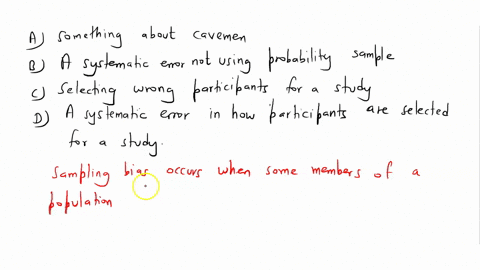 A) Something about cavemen
B) A systematic error not using probability sample
C) Selecting wrong participants for a study
D) A systematic error in how participants are selected
for a study.
Sampling bias occurs when some members of a
population